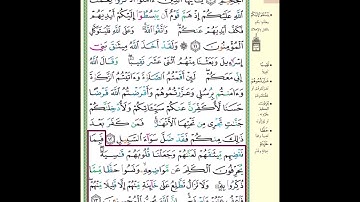 اللَّهِ عَلَيْكُمْ إِذْ هَمَّ قَوْمٌ أَن يَبْسُطُوا إِلَيْكُمْ أَيْدِيَهُمْ
فَكَفَّ أَيْدِيَهُمْ عَنكُمْ وَاتَّقُوا اللَّهَ وَعَلَى اللَّهِ فَلْيَتَوَكَّلِ
الْمُؤْمِنُونَ ۞ وَلَقَدْ أَخَذَ اللَّهُ مِيثَاقَ بَنِي
إِسْرَائِيلَ وَبَعَثْنَا مِنْهُمُ اثْنَيْ عَشَرَ نَقِيبًا وَقَالَ اللَّهُ
إِنِّي مَعَكُمْ لَئِنْ أَقَمْتُمُ الصَّلَاةَ وَآتَيْتُمُ الزَّكَاةَ
وَآمَنتُم بِرُسُلِي وَعَزَّرْتُمُوهُمْ وَأَقْرَضْتُمُ اللَّهَ قَرْضًا
حَسَنًا لَّأُكَفِّرَنَّ عَنكُمْ سَيِّئَاتِكُمْ وَلَأُدْخِلَنَّكُمْ
جَنَّاتٍ تَجْرِي مِن تَحْتِهَا الْأَنْهَارُ فَمَن كَفَرَ بَعْدَ
ذَٰلِكَ مِنكُمْ فَقَدْ ضَلَّ سَوَاءَ السَّبِيلِ ۝ فَبِمَا
نَقْضِهِم مِّيثَاقَهُمْ لَعَنَّاهُمْ وَجَعَلْنَا قُلُوبَهُمْ قَاسِيَةً
يُحَرِّفُونَ الْكَلِمَ عَن مَّوَاضِعِهِ وَنَسُوا حَظًّا مِّمَّا
ذُكِّرُوا بِهِ وَلَا تَزَالُ تَطَّلِعُ عَلَىٰ خَائِنَةٍ مِّنْهُمْ إِلَّا قَلِيلًا مِّنْهُمْ